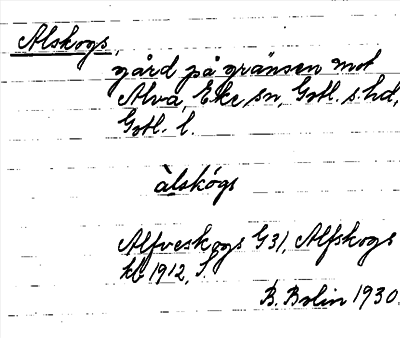 Alskogs,
gård på gränsen mot
Alva, Eke sn, Gotl. s. hd,
Gotl. l.
àlskógs
Alfveskogs G31, Alfskogs
kb 1912, S.
B. Bolin 1930.